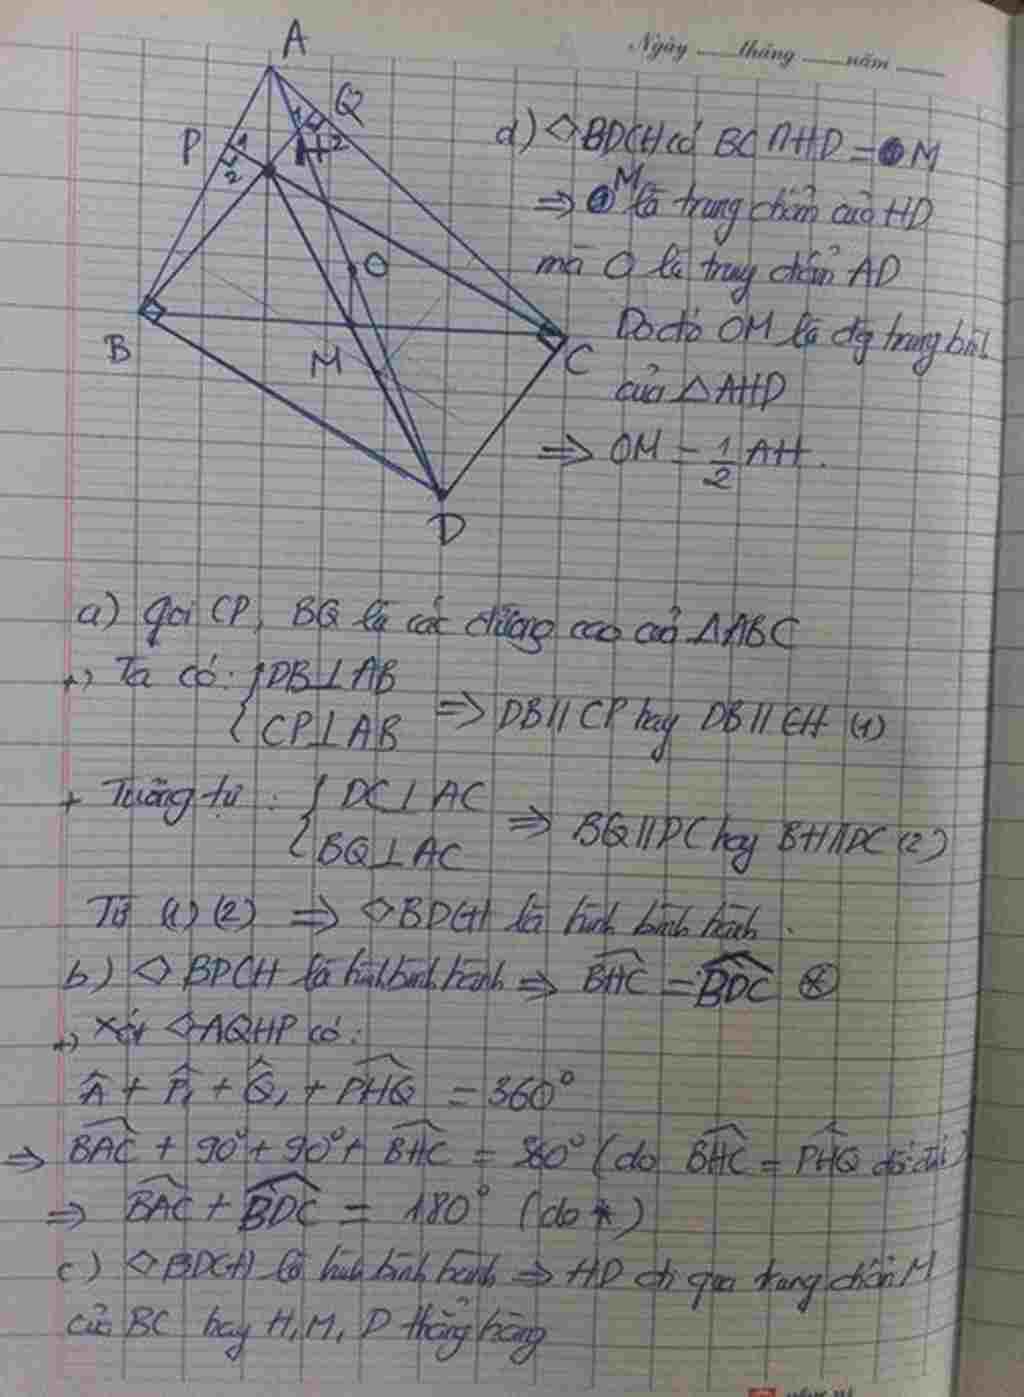 Ngày ..... tháng ..... năm .....
A
Q
P 1
2
1
H 2
O
B
M
C
D
d) ◇BDCH có BC ∩ HD = M
⇒ M là trung điểm của HD
mà O là trung điểm AD
Do đó OM là đg trung bình
của △AHD
⇒ OM = 1/2 AH.
a) Gọi CP, BQ là các đường cao của △ABC
+) Ta có: { DB⊥AB
CP⊥AB ⇒ DB//CP hay DB//CH (1)
+ Tương tự : { DC⊥AC
BQ⊥AC ⇒ BQ//DC hay BH//DC (2)
Từ (1) (2) ⇒ ◇BDCH là hình bình hành.
b) ◇BDCH là hình bình hành ⇒ BHC = BDC (*)
+) Xét ◇AQHP có:
Â + P̂₁ + Q̂₁ + PHQ = 360°
⇒ BAC + 90° + 90° + BHC = 360° (do BHC = PHQ đối đỉnh)
⇒ BAC + BDC = 180° (do *)
c) ◇BDCH là hình bình hành ⇒ HD đi qua trung điểm M
của BC hay H, M, D thẳng hàng